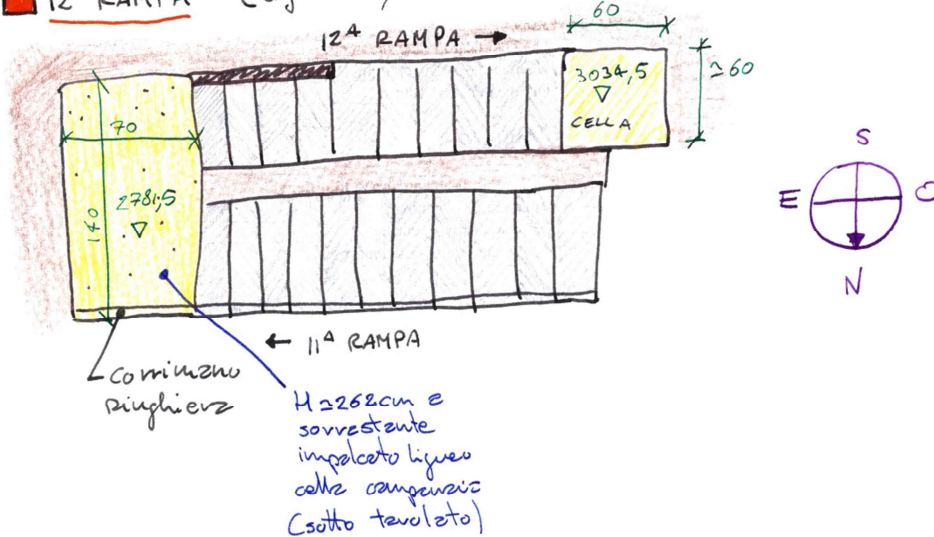 12ª RAMPA
60
12ª RAMPA →
3034,5
CELLA
≃60
70
2781,5
140
S
E
O
N
← 11ª RAMPA
corrimano
ringhiera
H≃262cm a
sovrastante
impalcato ligneo
cella campanaria
(sotto tavolato)